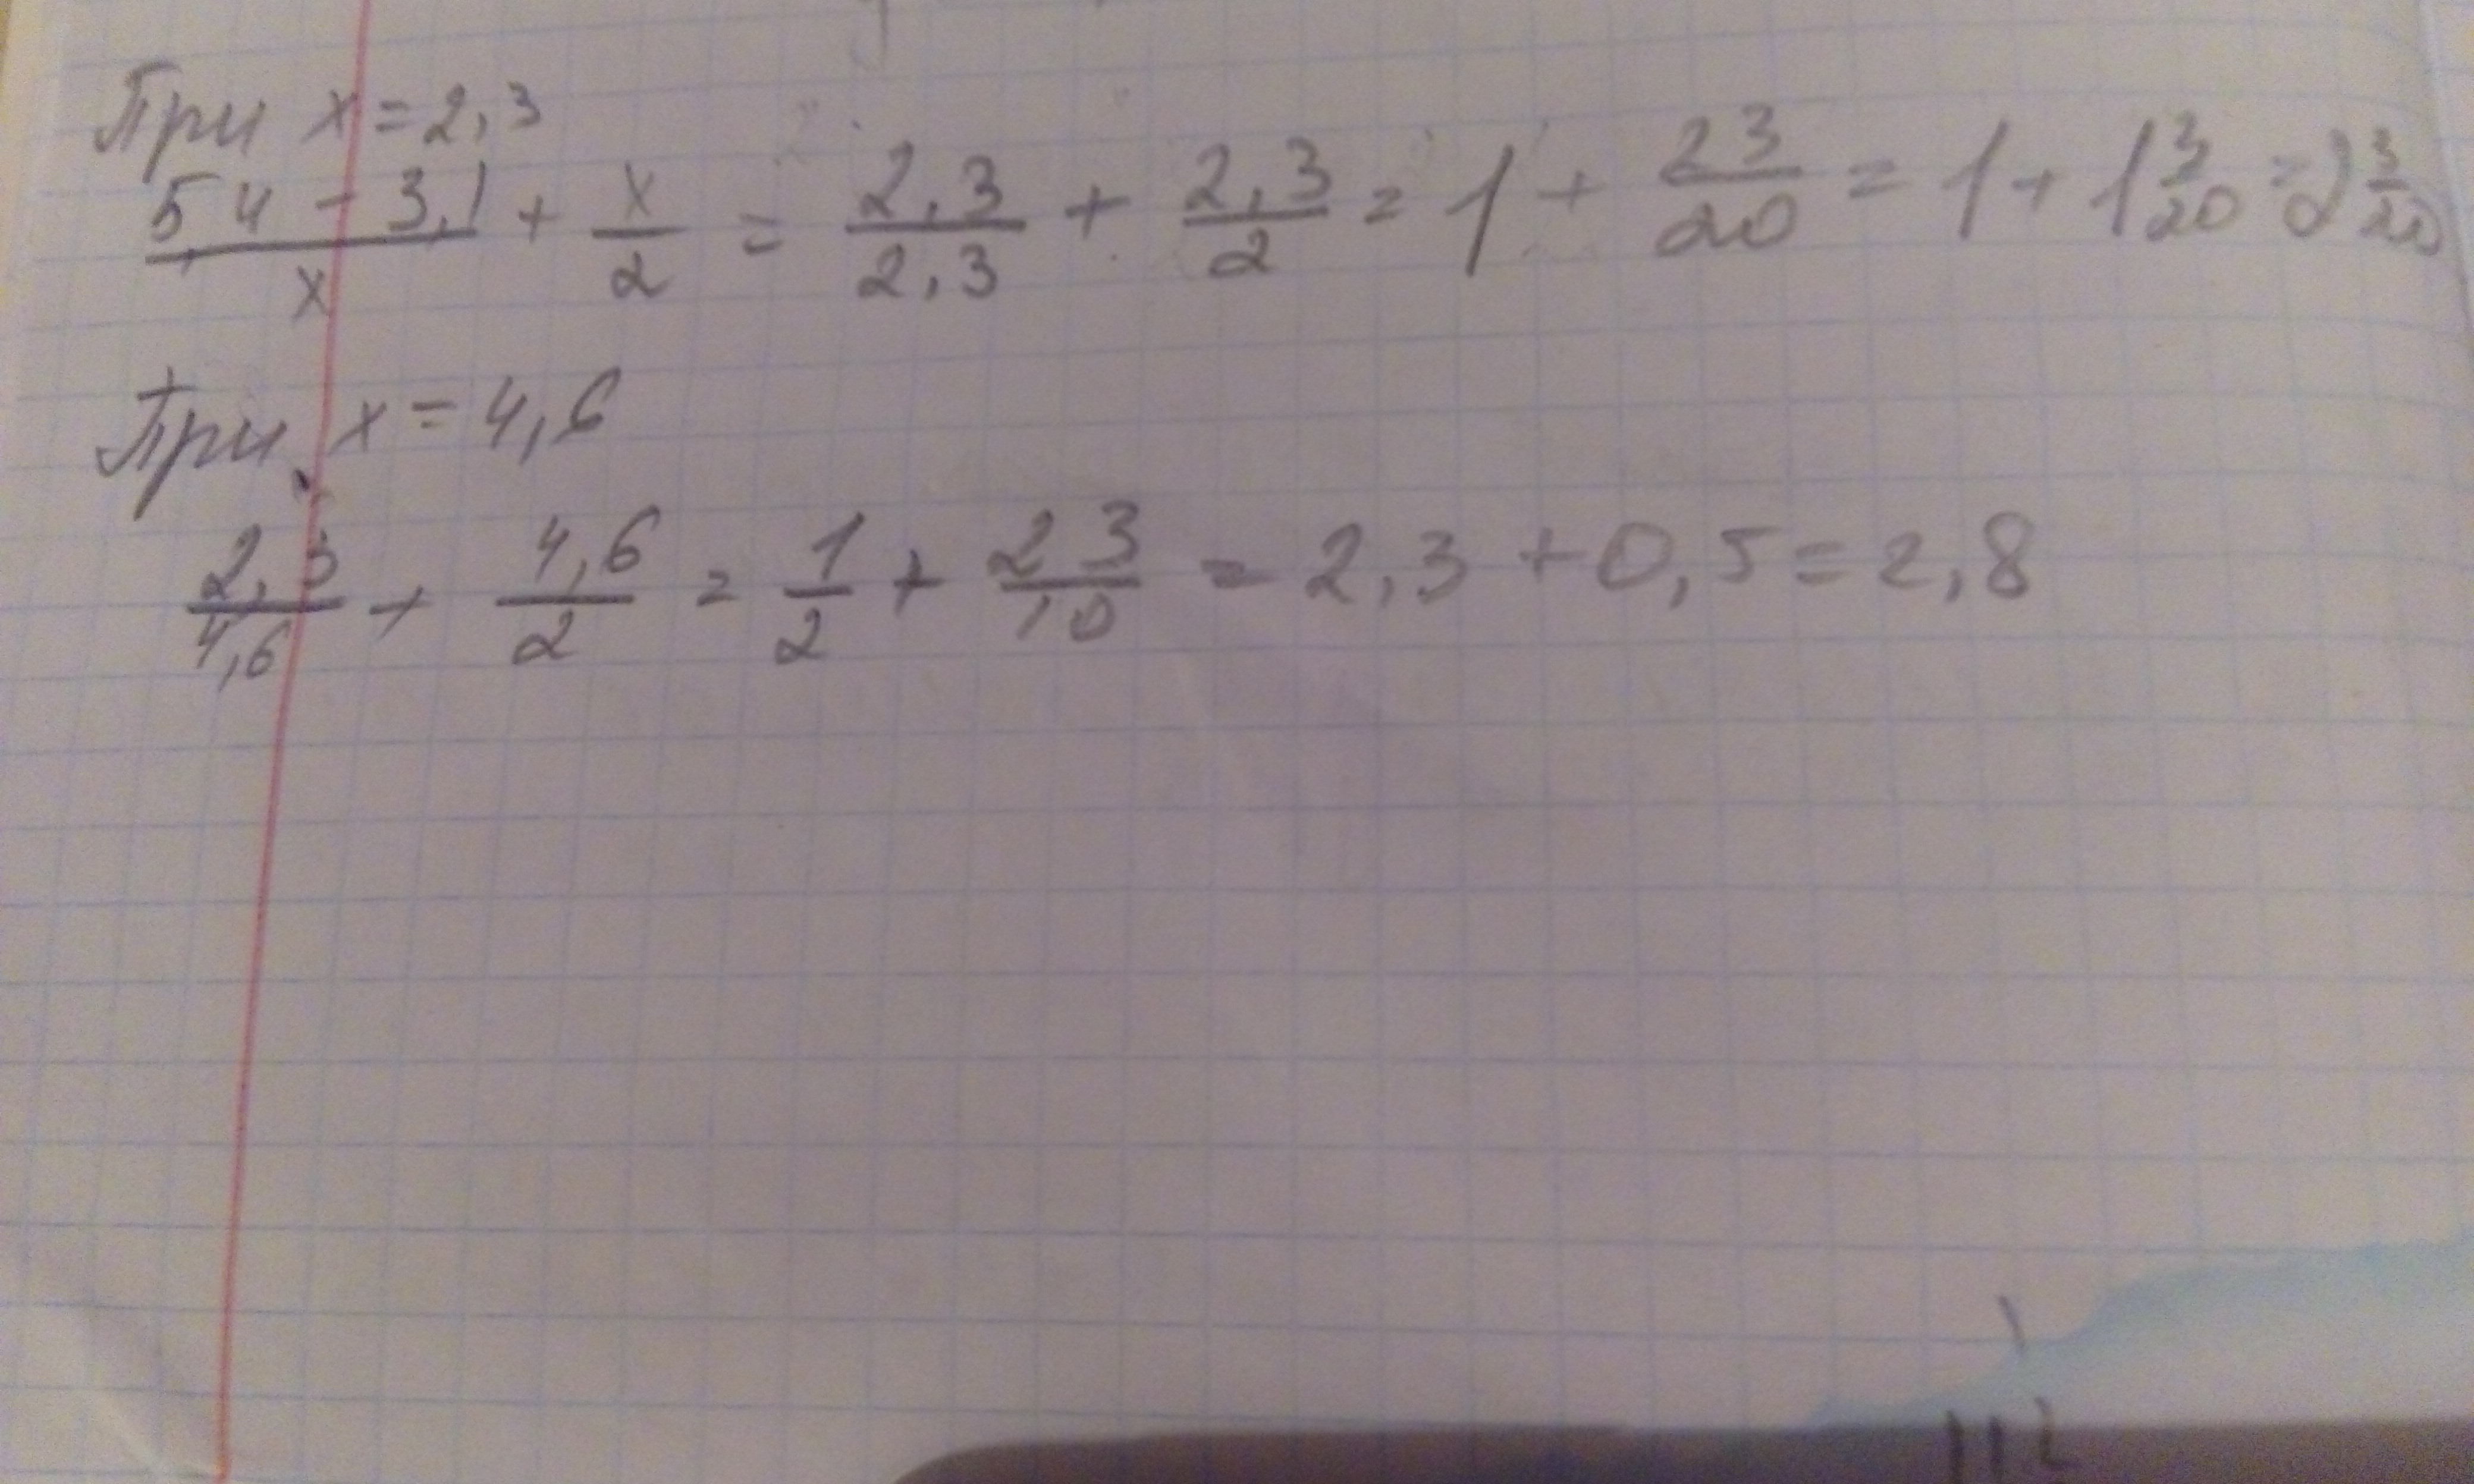 При x = 2,3
\frac{5,4 - 3,1}{x} + \frac{x}{2} = \frac{2,3}{2,3} + \frac{2,3}{2} = 1 + \frac{23}{20} = 1 + 1\frac{3}{20} = 2\frac{3}{20}
При x = 4,6
\frac{2,3}{4,6} + \frac{4,6}{2} = \frac{1}{2} + \frac{23}{10} = 2,3 + 0,5 = 2,8